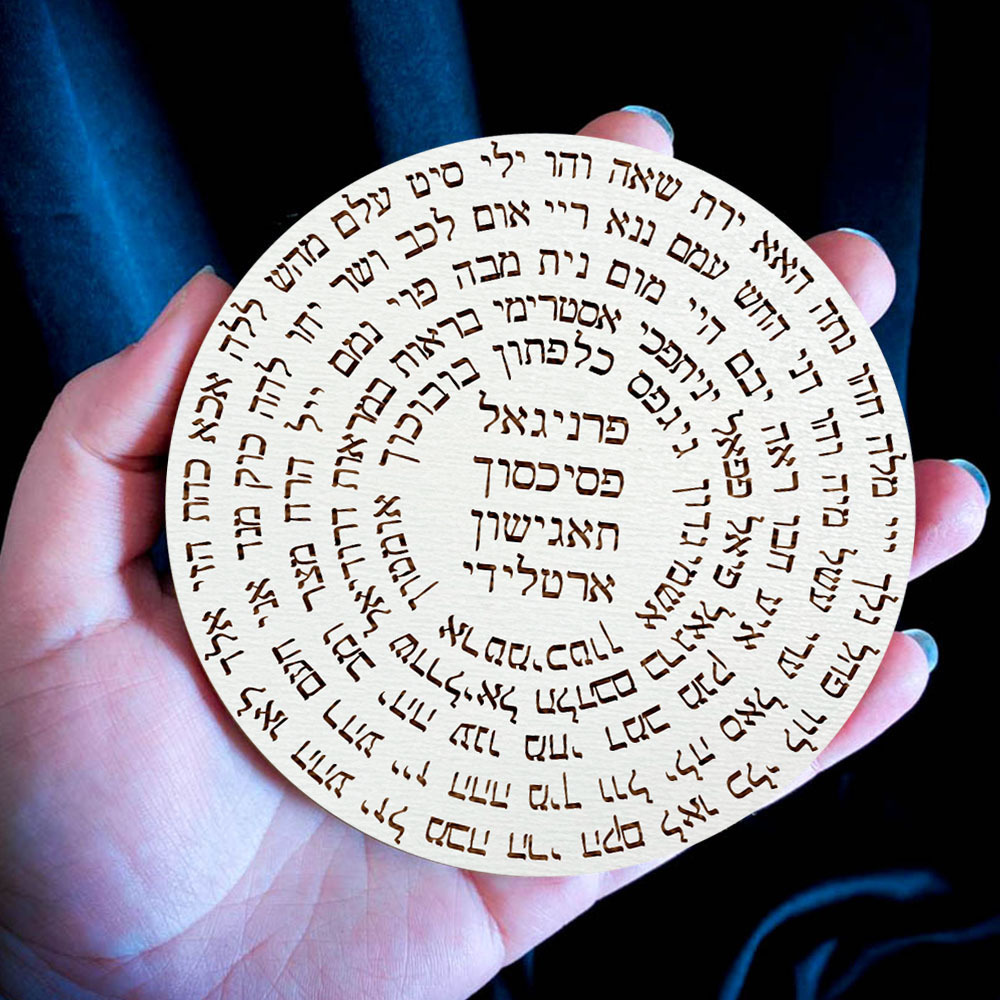 והו ילי סיט עלם מהש ללה אכא כהת הזי אלד לאו ההע יזל מבה הרי הקם לאו כלי לוו פהל נלך ייי מלה חהו נתה האא ירת שאה
ריי אום לכב ושר יחו להה כוק מנד אני חעם רהע ייז ההה מיך וול ילה סאל ערי עשל מיה והו דני החש עמם ננא
נית מבה פוי נמם ייל הרח מצר ומב יהה ענו מחי דמב מנק איע חבו ראה יבם היי מום
אסטרימי בראות במראות דרדיאל שדרליאל תלדחם ברגאל פיאל פפאל יניתפכי
כלפתון בובוכון אומטון ארסמיכטון אשמיגדרון גיגפס
פרניגאל
פסיכסוך
תאגישון
ארטלידי